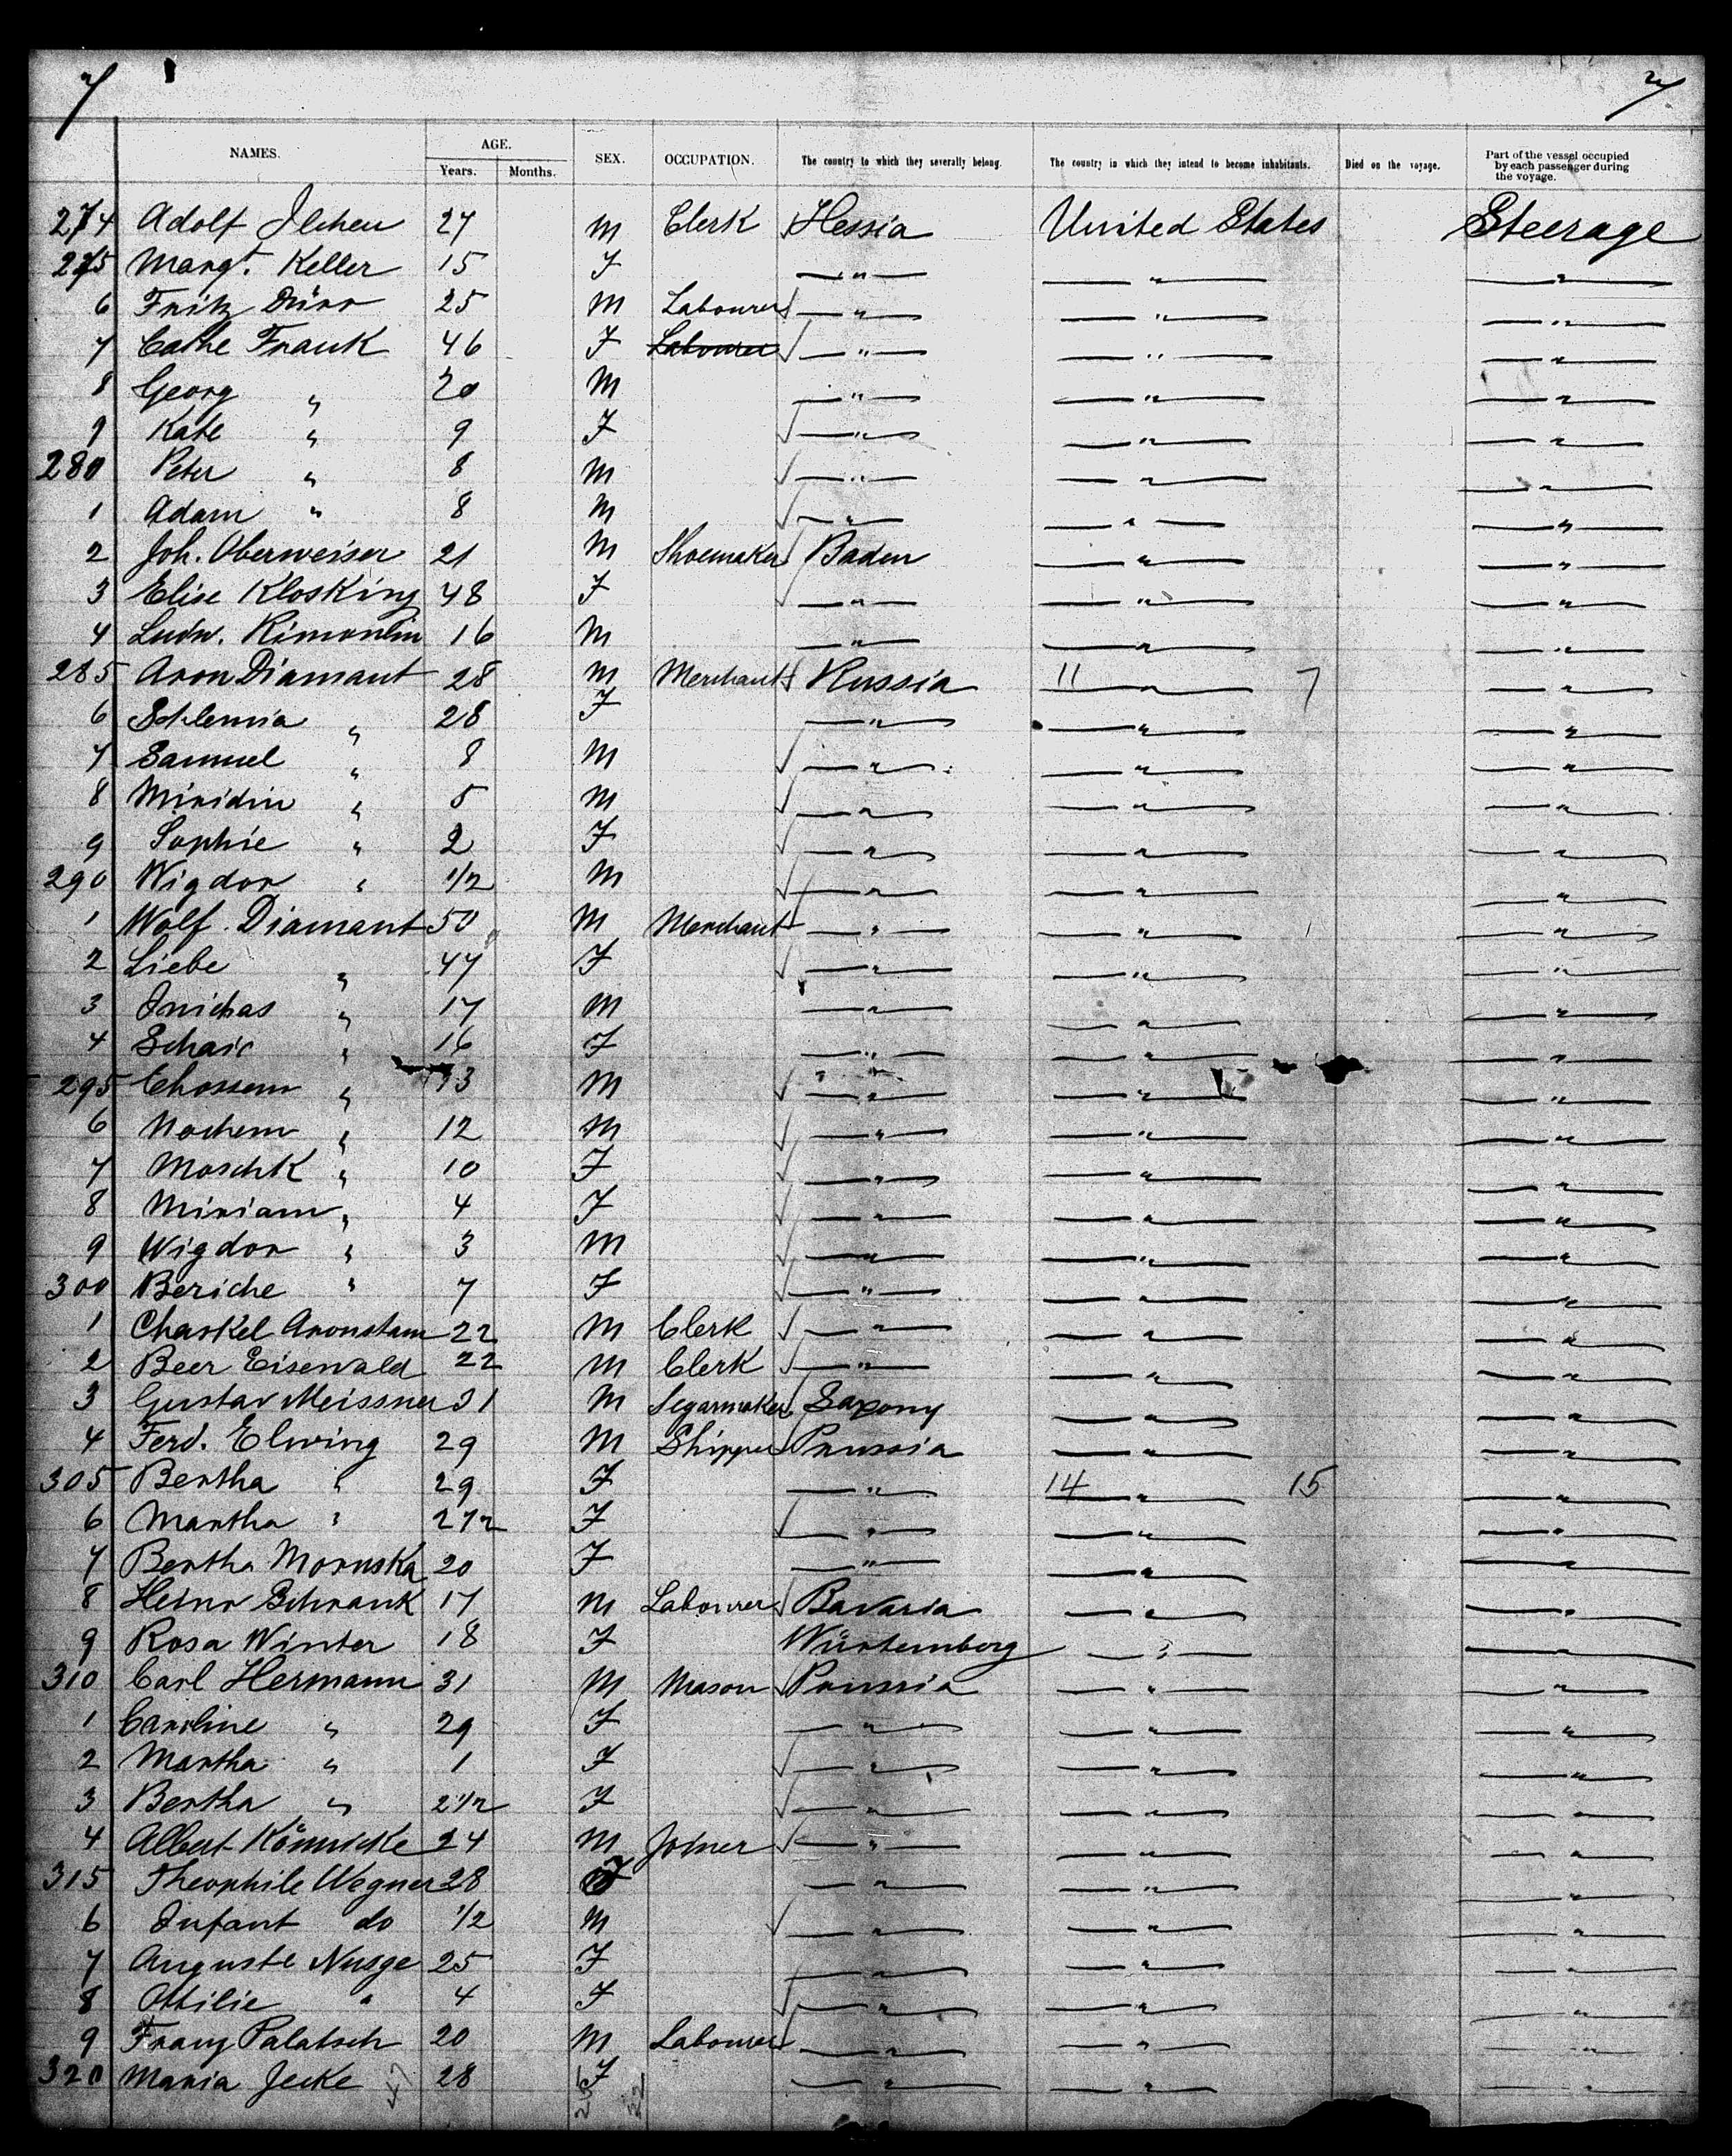 7 7
NAMES. AGE. Years. Months. SEX. OCCUPATION. The country to which they severally belong. The country in which they intend to become inhabitants. Died on the voyage. Part of the vessel occupied by each passenger during the voyage.
274 Adolf 27 M Clerk Hessia United States Steerage
275 Margt. Keller 15 F " " "
6 Fritz Dürr 25 M Labourer " " "
7 Cathe Frank 46 F Labourer " " "
8 Georg " 20 M " " "
9 Kate " 9 F " " "
280 Peter " 8 M " " "
1 Adam " 8 M " " "
2 Joh. Oberweiser 21 M Shoemaker Baden " "
3 Elise Klosking 48 F " " "
4 Ludw. 16 M " " "
285 Aron Diamant 28 M Merchant Russia 11 " 7 "
6 Schlemia " 28 F " " "
7 Samuel " 8 M " " "
8 Miridin " 5 M " " "
9 Sophie " 2 F " " "
290 Wigdor " 1/2 M " " "
1 Wolf Diamant 50 M Merchant " " "
2 Liebe " 47 F " " "
3 " 17 M " " "
4 " 16 F " " "
295 Chossem " 13 M " " "
6 Nochem " 12 M " " "
7 Moschk " 10 F " " "
8 Miriam " 4 F " " "
9 Wigdor " 3 M " " "
300 Beriche " 7 F " " "
1 Chaskel Aronstam 22 M Clerk " " "
2 Beer Eisenwald 22 M Clerk " " "
3 Gustav Meissner 31 M Segarmaker Saxony " "
4 Ferd. Elwing 29 M Shipper Prussia " "
305 Bertha " 29 F " 14 " 15 "
6 Martha " 2 1/2 F " " "
7 Bertha Mornska 20 F " " "
8 Heinr Schrank 17 M Labourer Bavaria " "
9 Rosa Winter 18 F Würtemberg " "
310 Carl Hermann 31 M Mason Prussia " "
1 Caroline " 29 F " " "
2 Martha " 1 F " " "
3 Bertha " 2 1/2 F " " "
4 Albert Könnicke 24 M Joiner " " "
315 Theophile Wegner 28 F " " "
6 Infant do 1/2 M " " "
7 Auguste Nusge 25 F " " "
8 Ottilie " 4 F " " "
9 Franz Palatsch 20 M Labourer " " "
320 Maria Jecke 28 F " " "
22